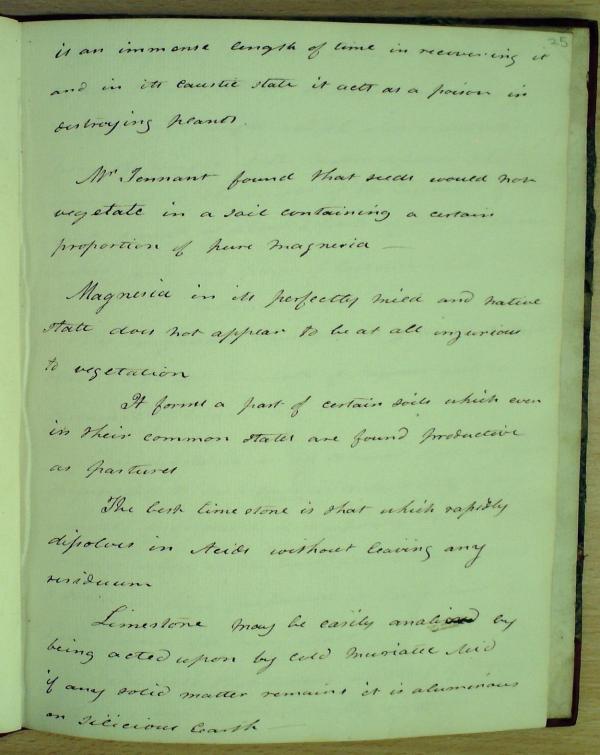 25
is an immense length of time in recovering it
and in its caustic state it acts as a poison in
destroying plants.
Mr Tennant found that seeds would not
vegetate in a soil containing a certain
proportion of pure magnesia —
Magnesia in its perfectly mild and native
state does not appear to be at all injurious
to vegetation
It forms a part of certain soils which even
in their common states are found productive
as pastures
The best lime stone is that which rapidly
dissolves in Acids without leaving any
residuum
Limestone may be easily by
being acted upon by cold Muriatic Acid
if any solid matter remains it is aluminous
or silicious Earth —